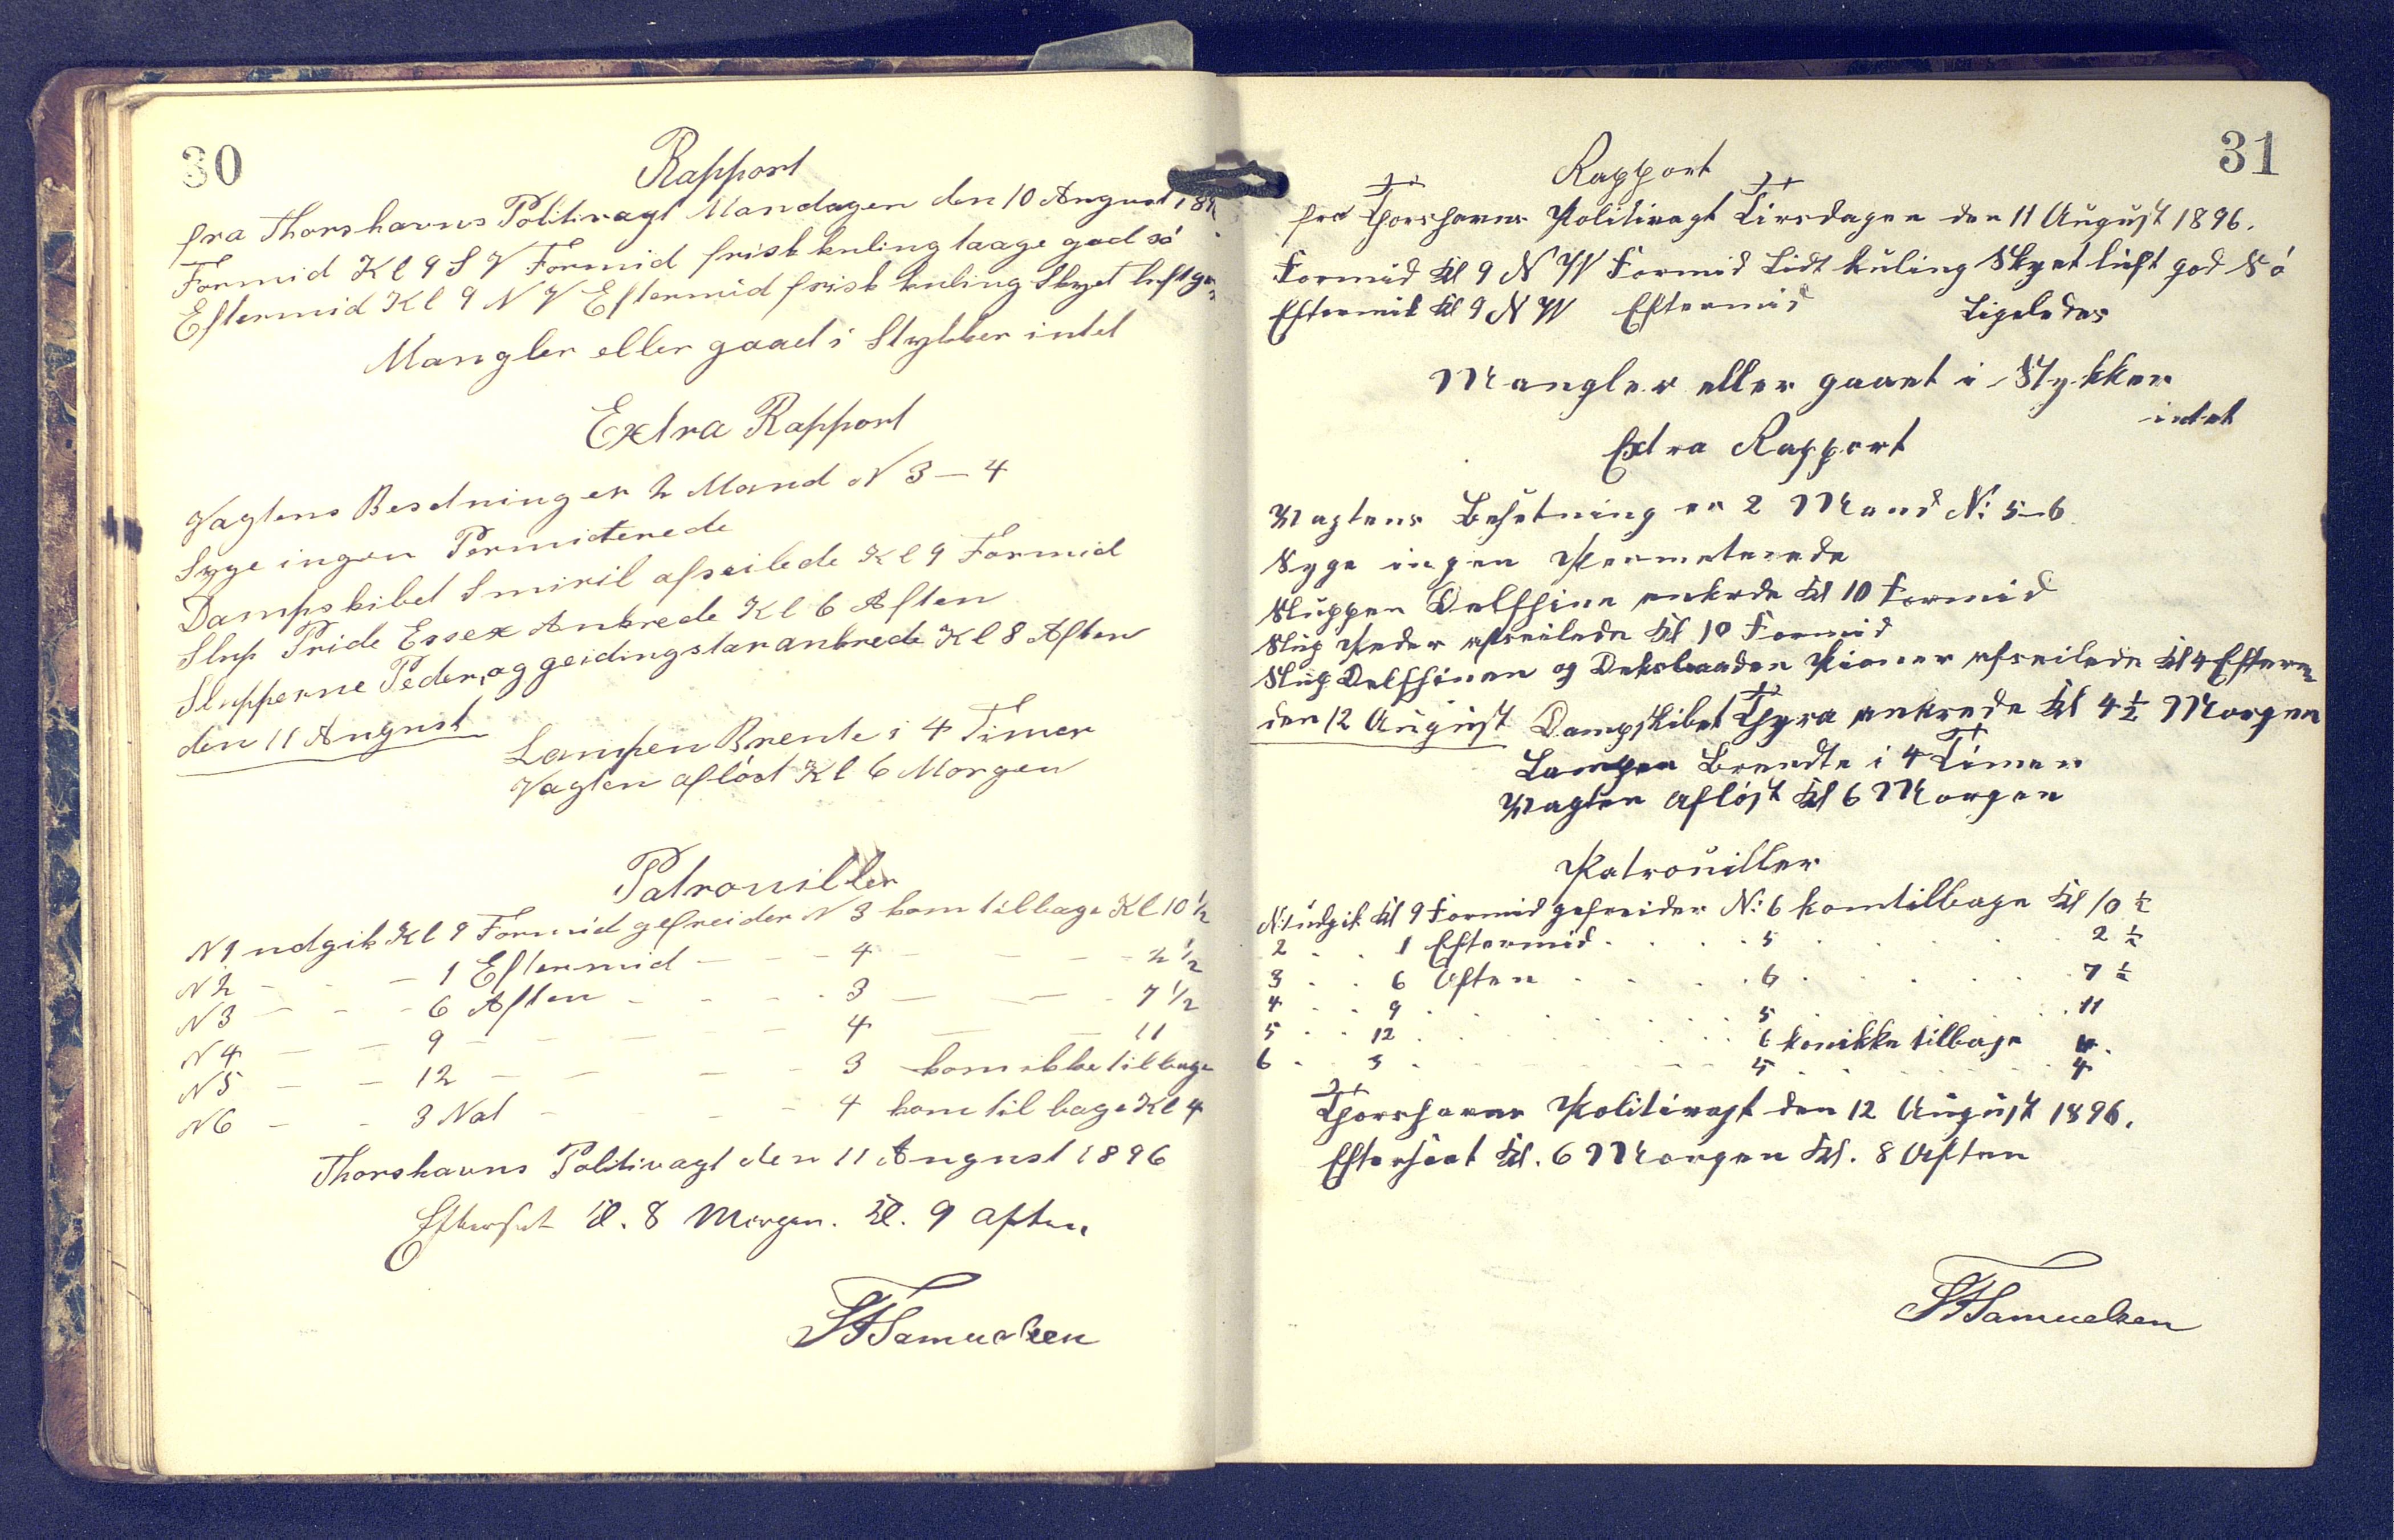 30
Rapport
fra Thorshavns Politivagt Mandagen den 10 August 189
Formid Kl 9 S V Formid frisk kuling taage god só
Eftermid Kl 9 N V Eftermid frisk kuling Skyet luft
Mangler eller gaaet i Stykker intet
Extra Rapport
Vagtens Besetning er 2 Mand N 3 — 4
Syge ingen Permiterede
Dampskibet Smiril afseilede Kl 9 Formid
Slup Pride Essex Ankrede Kl 6 Aften
Slupperne Peder, og geidingstar ankrede Kl 8 Aften
den 11 August
Lampen Brente i 4 Timer
Vagten aflóst Kl 6 Morgen
Patrouiller
N 1 udgik Kl 9 Formid gefreider N 3 kom tilbage Kl 10 1/2
N 2 - - - 1 Eftermid - - - 4 - - - 2 1/2
N 3 - - - 6 Aften - - - 3 - - - 7 1/2
N 4 - - 9 - - - - 4 - - 11
N 5 - - 12 - - - - 3 kom ikke tilbage
N 6 - - 3 Nat - - - 4 kom til bage Kl 4
Thorshavns Politivagt den 11 August 1896
Efterset Kl. 8 Morgen. Kl. 9 Aften.
Samuelsen
31
Rapport
fra Thorshavns Politivagt Tirsdagen den 11 August 1896.
Formid Kl 9 N W Formid Lidt kuling Skyet luft god Só
Eftermid Kl 9 N W Eftermid Ligeledes
Mangler eller gaaet i Stykker
intet
Extra Rapport
Vagtens Besetning er 2 Mand N: 5-6
Syge ingen Permeterede
Sluppen Delffine ankrde Kl 10 Formid
Slup Peder afseilede Kl 10 Formid
Slup Delffinen og Deksbaaden Pioner afseilede Kl 4 Efterm
den 12 August Dampskibet Thyra ankrede Kl 4 1/2 Morgen
Lampen Brendte i 4 Timer
Vagten Aflóst Kl 6 Morgen
Patrouiller
N: 1 udgik Kl 9 Formid gefreider N: 6 kom tilbage Kl 10 1/2
2 . . 1 Eftermid . . . . 5 . . . . 2 1/2
3 . . 6 Aften . . . . 6 . . . . 7 1/2
4 . . 9 . . . . 5 . . . . 11
5 . . 12 . . . . 6 kom ikke tilbage
6 . . 3 . . . . 5 . . . . 4
Thorshavns Politivagt den 12 August 1896.
Efterseet Kl. 6 Morgen Kl. 8 Aften
Samuelsen